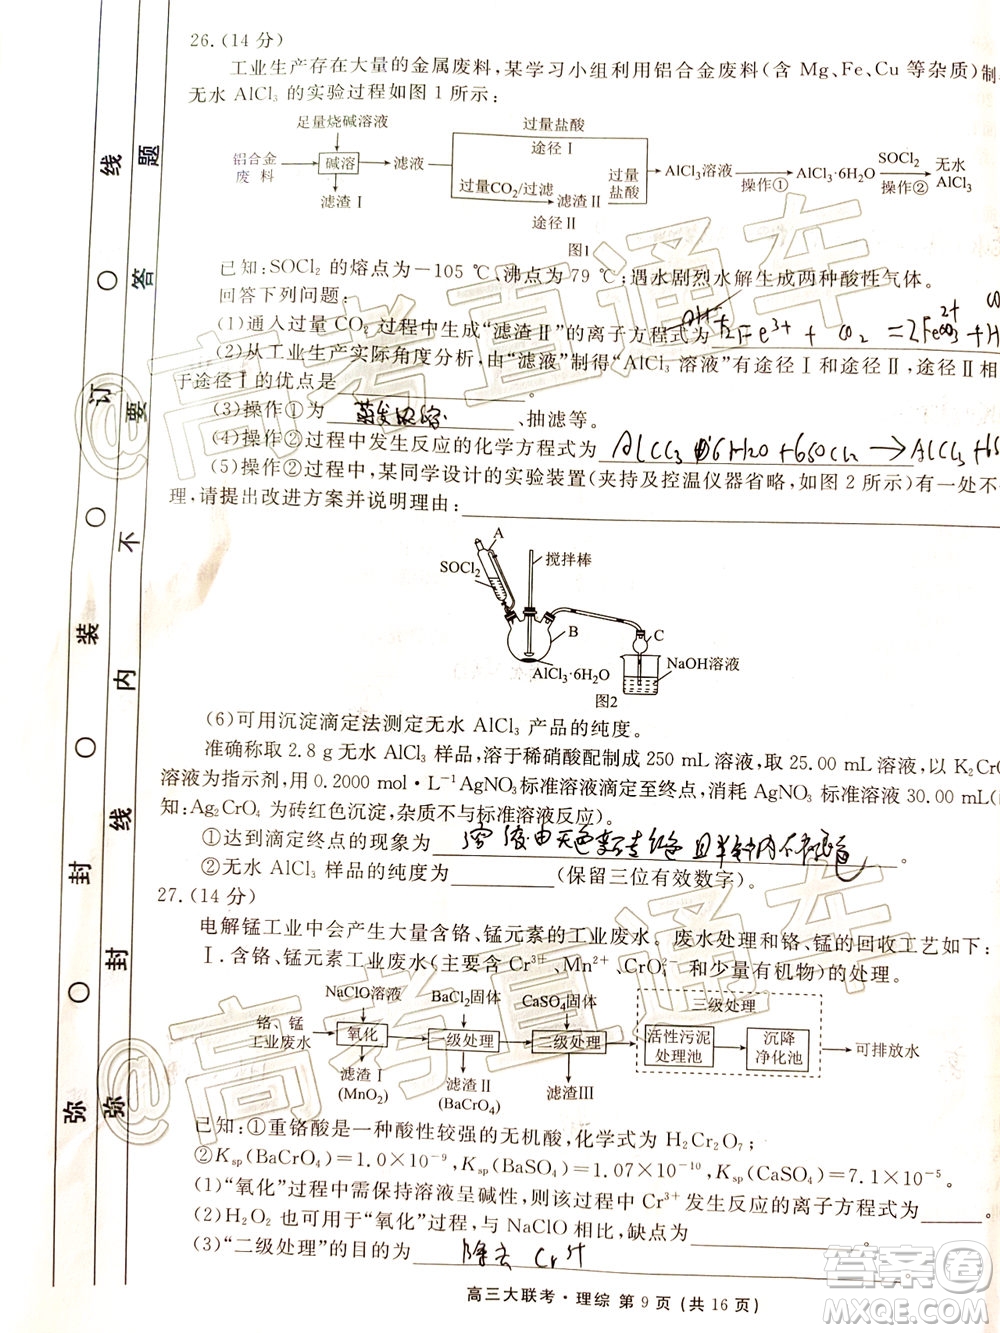 26.(14 分)
工业生产存在大量的金属废料,某学习小组利用铝合金废料(含 Mg、Fe、Cu 等杂质)制
无水 AlCl₃ 的实验过程如图 1 所示:
足量烧碱溶液
过量盐酸
铝合金废料
碱溶
滤液
途径 I
过量CO₂/过滤
滤渣 II
过量盐酸
AlCl₃溶液
操作①
AlCl₃·6H₂O
SOCl₂
操作②
无水AlCl₃
滤渣 I
途径 II
图1
已知:SOCl₂ 的熔点为－105 ℃、沸点为 79 ℃;遇水剧烈水解生成两种酸性气体。
回答下列问题:
(1)通入过量 CO₂ 过程中生成“滤渣 II”的离子方程式为 2Fe³⁺ + CO₂ =
(2)从工业生产实际角度分析,由“滤液”制得“AlCl₃ 溶液”有途径 I 和途径 II,途径 II 相
于途径 I 的优点是
(3)操作①为 蒸发浓溶、抽滤等。
(4)操作②过程中发生反应的化学方程式为 AlCl₃·6H₂O+6SOCl₂ → AlCl₃+6S
(5)操作②过程中,某同学设计的实验装置(夹持及控温仪器省略,如图 2 所示)有一处不
理,请提出改进方案并说明理由:
A
搅拌棒
SOCl₂
B
C
AlCl₃·6H₂O
NaOH溶液
图2
(6)可用沉淀滴定法测定无水 AlCl₃ 产品的纯度。
准确称取 2.8 g 无水 AlCl₃ 样品,溶于稀硝酸配制成 250 mL 溶液,取 25.00 mL 溶液,以 K₂CrO
溶液为指示剂,用 0.2000 mol·L⁻¹AgNO₃标准溶液滴定至终点,消耗 AgNO₃ 标准溶液 30.00 mL(
知:Ag₂CrO₄ 为砖红色沉淀,杂质不与标准溶液反应)。
①达到滴定终点的现象为 溶液由无色变 红色 且半 钟内不 色。
②无水 AlCl₃ 样品的纯度为 (保留三位有效数字)。
27.(14 分)
电解锰工业中会产生大量含铬、锰元素的工业废水。废水处理和铬、锰的回收工艺如下:
I.含铬、锰元素工业废水(主要含 Cr³⁺、Mn²⁺、CrO₄²⁻ 和少量有机物)的处理。
NaClO溶液
BaCl₂固体
CaSO₄固体
三级处理
铬、锰工业废水
氧化
一级处理
二级处理
活性污泥处理池
沉降净化池
可排放水
滤渣 I (MnO₂)
滤渣 II (BaCrO₄)
滤渣III
已知:①重铬酸是一种酸性较强的无机酸,化学式为 H₂Cr₂O₇;
②Ksp(BaCrO₄)=1.0×10⁻⁹,Ksp(BaSO₄)=1.07×10⁻¹⁰,Ksp(CaSO₄)=7.1×10⁻⁵。
(1)“氧化”过程中需保持溶液呈碱性,则该过程中 Cr³⁺ 发生反应的离子方程式为 。
(2)H₂O₂ 也可用于“氧化”过程,与 NaClO 相比,缺点为 。
(3)“二级处理”的目的为 除去 Cr³⁺
高三大联考·理综 第 9 页 (共 16 页)
弥 ○ 封 ○ 装 ○ 订 ○ 线
弥 封 线 内 不 要 答 题
@高考直通车
@高考直通车
答案圈
MXQE.COM